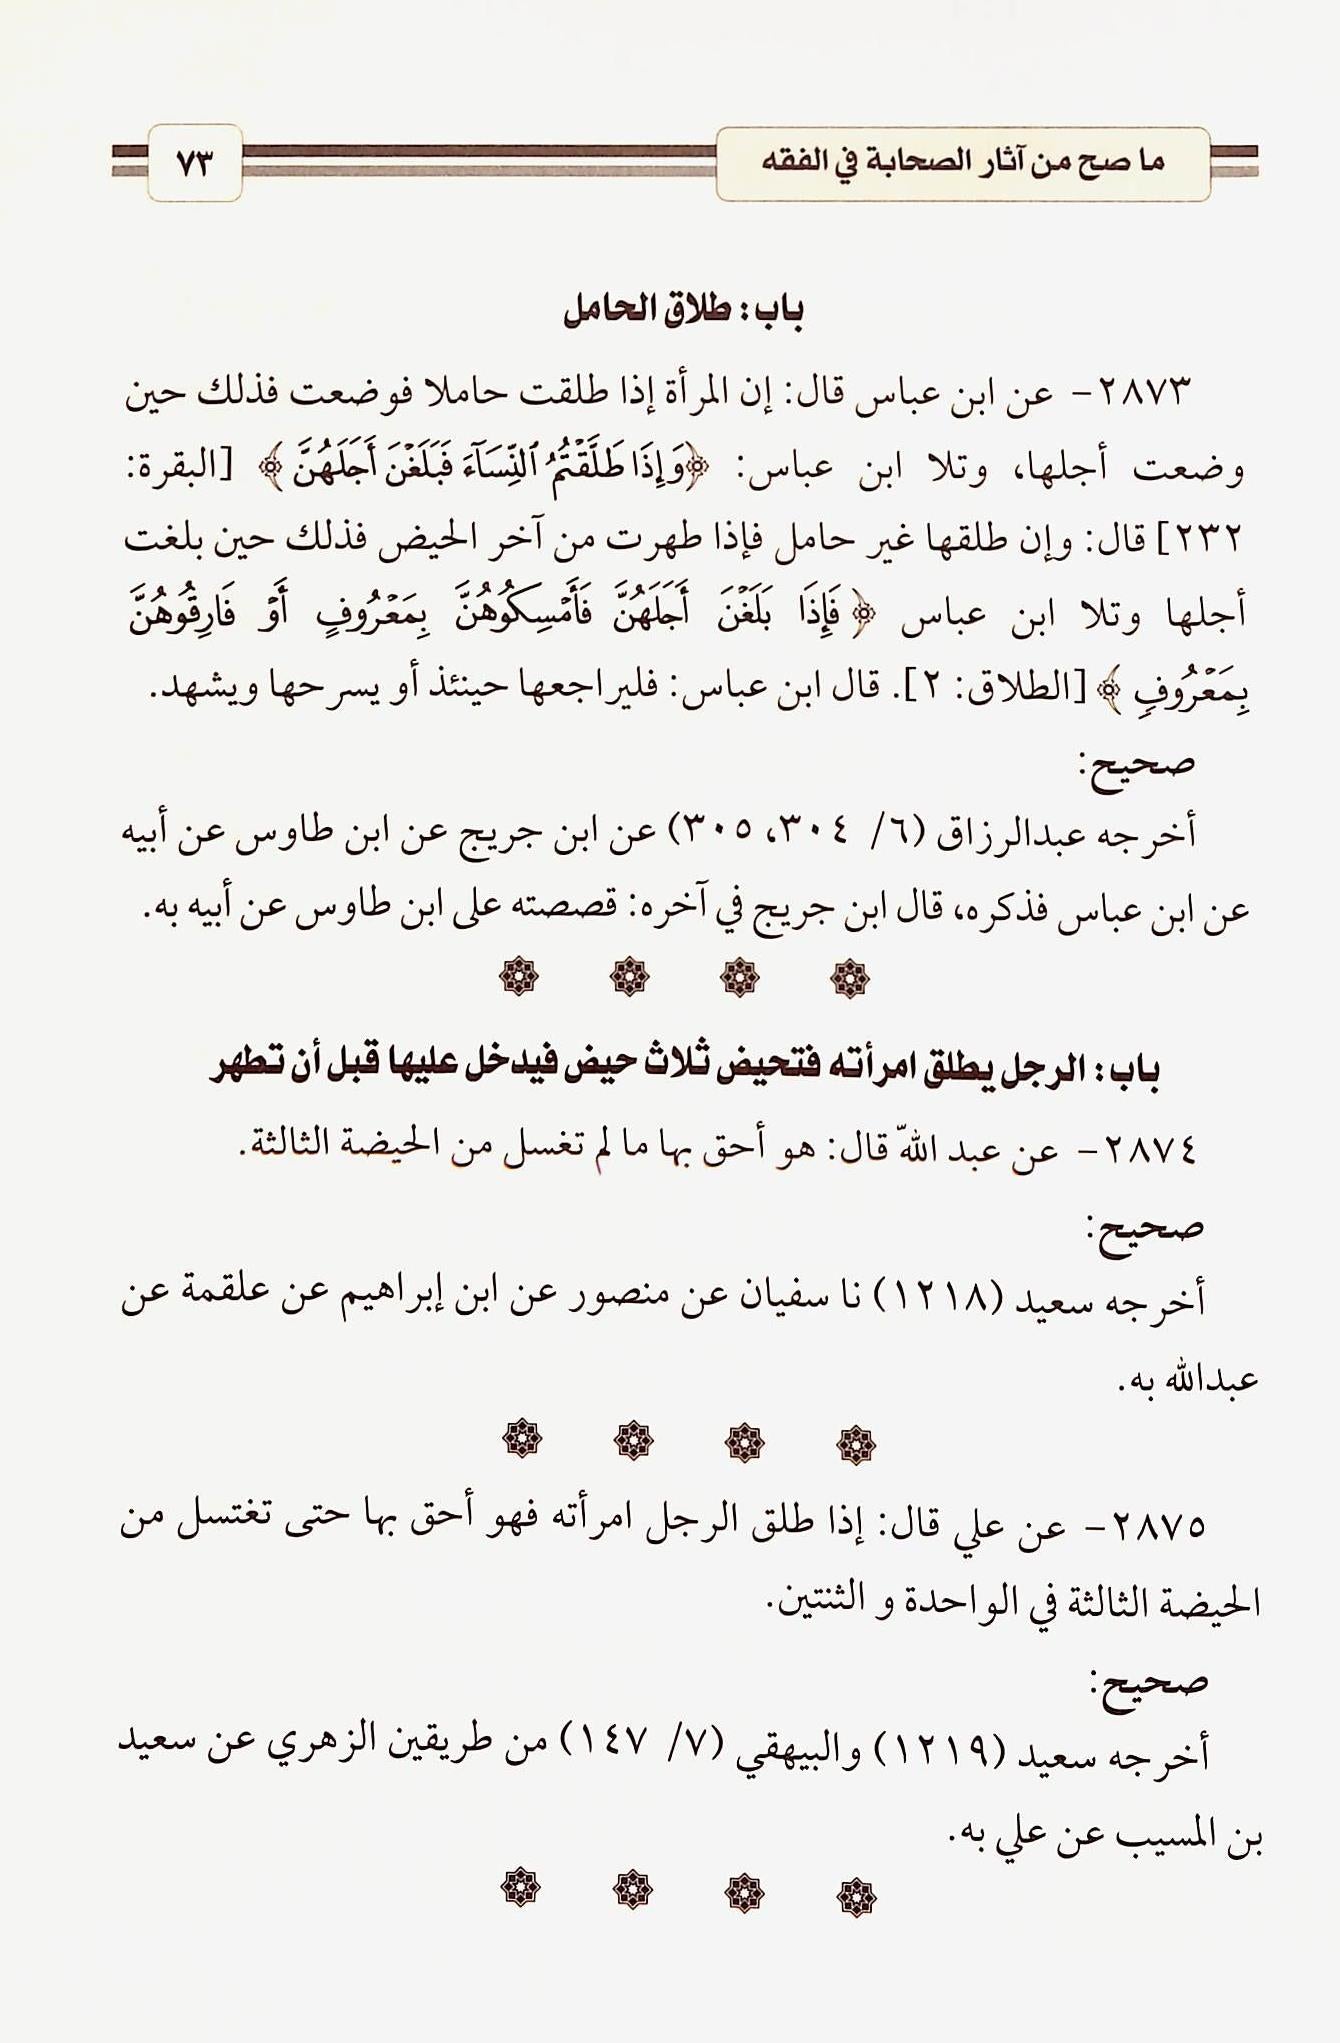 ما صح من آثار الصحابة في الفقه
٧٣
باب: طلاق الحامل
٢٨٧٣- عن ابن عباس قال: إن المرأة إذا طلقت حاملا فوضعت فذلك حين
وضعت أجلها، وتلا ابن عباس: ﴿وَإِذَا طَلَّقۡتُمُ ٱلنِّسَآءَ فَبَلَغۡنَ أَجَلَهُنَّ﴾ [البقرة:
٢٣٢] قال: وإن طلقها غير حامل فإذا طهرت من آخر الحيض فذلك حين بلغت
أجلها وتلا ابن عباس ﴿فَإِذَا بَلَغۡنَ أَجَلَهُنَّ فَأَمۡسِكُوهُنَّ بِمَعۡرُوفٍ أَوۡ فَارِقُوهُنَّ
بِمَعۡرُوفٍ﴾ [الطلاق: ٢]. قال ابن عباس: فليراجعها حينئذ أو يسرحها ويشهد.
صحيح:
أخرجه عبدالرزاق (٦/ ٣٠٤، ٣٠٥) عن ابن جريج عن ابن طاوس عن أبيه
عن ابن عباس فذكره، قال ابن جريج في آخره: قصصته على ابن طاوس عن أبيه به.
باب: الرجل يطلق امرأته فتحيض ثلاث حيض فيدخل عليها قبل أن تطهر
٢٨٧٤- عن عبد اللهّ قال: هو أحق بها ما لم تغسل من الحيضة الثالثة.
صحيح:
أخرجه سعيد (١٢١٨) نا سفيان عن منصور عن ابن إبراهيم عن علقمة عن
عبدالله به.
٢٨٧٥- عن علي قال: إذا طلق الرجل امرأته فهو أحق بها حتى تغتسل من
الحيضة الثالثة في الواحدة و الثنتين.
صحيح:
أخرجه سعيد (١٢١٩) والبيهقي (٧/ ١٤٧) من طريقين الزهري عن سعيد
بن المسيب عن علي به.